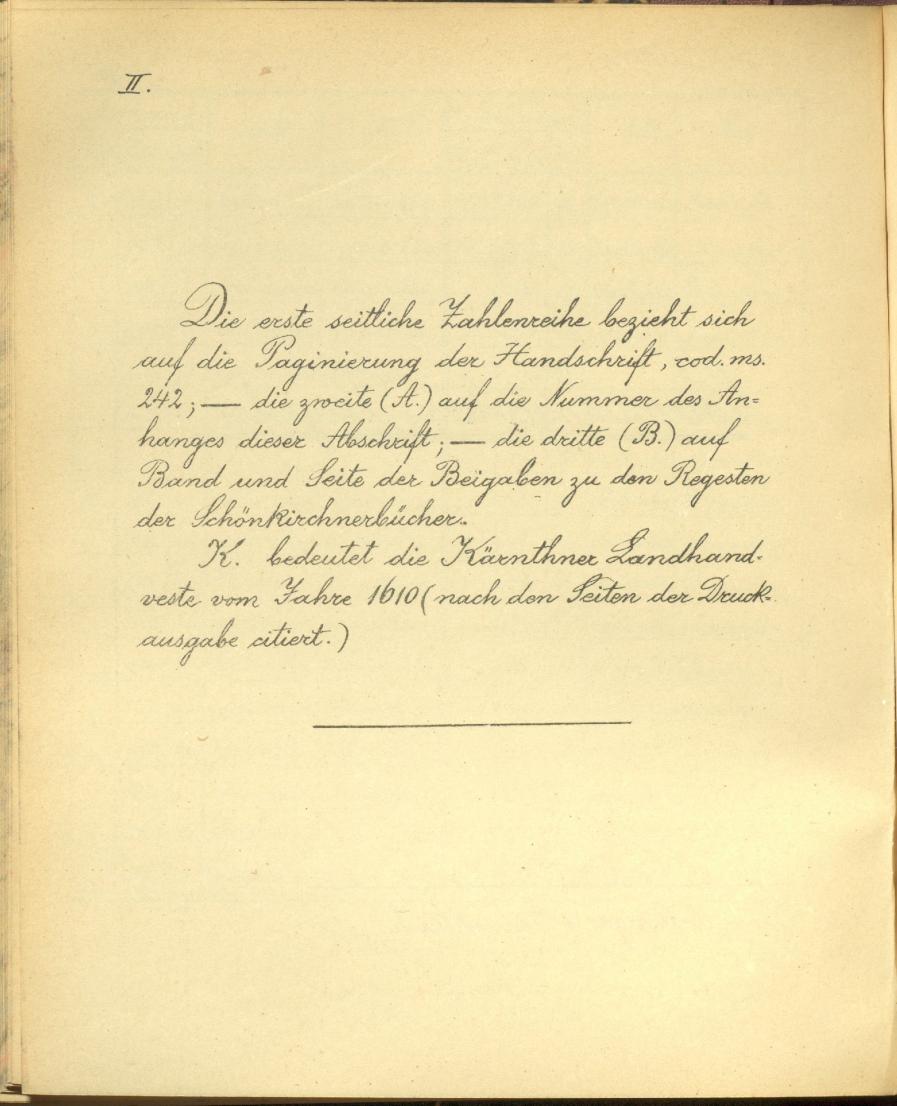 II.
Die erste seitliche Zahlenreihe bezieht sich
auf die Paginierung der Handschrift, cod. ms.
242; — die zweite (A.) auf die Nummer des An=
hanges dieser Abschrift; — die dritte (B.) auf
Band und Seite der Beigaben zu den Regesten
der Schönkirchnerbücher.
K. bedeutet die Kärnthner Landhand-
veste vom Jahre 1610 (nach den Seiten der Druck-
ausgabe citiert.)